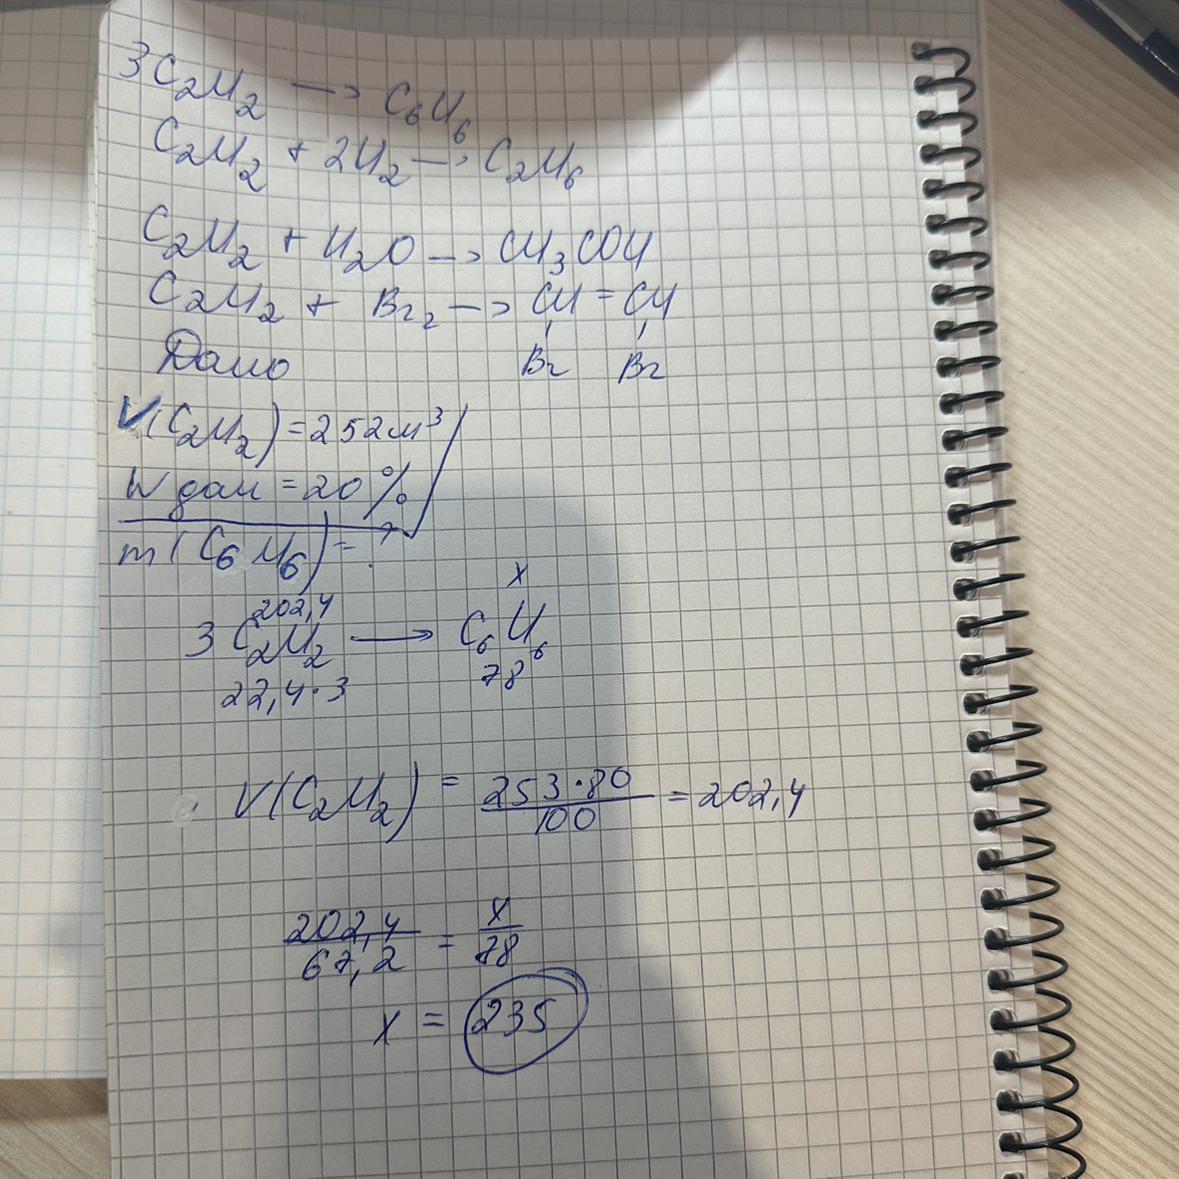 3C₂H₂ → C₆H₆
C₂H₂ + 2H₂ → C₂H₆
C₂H₂ + H₂O → CH₃COH
C₂H₂ + Br₂ → CH = CH
Br Br
Дано
V(C₂H₂) = 252м³
W дам = 20%
m(C₆H₆) = ?
202,4 x
3 C₂H₂ ⟶ C₆H₆
22,4·3 78
V(C₂H₂) = 253·80/100 = 202,4
202,4/67,2 = x/78
x = 235